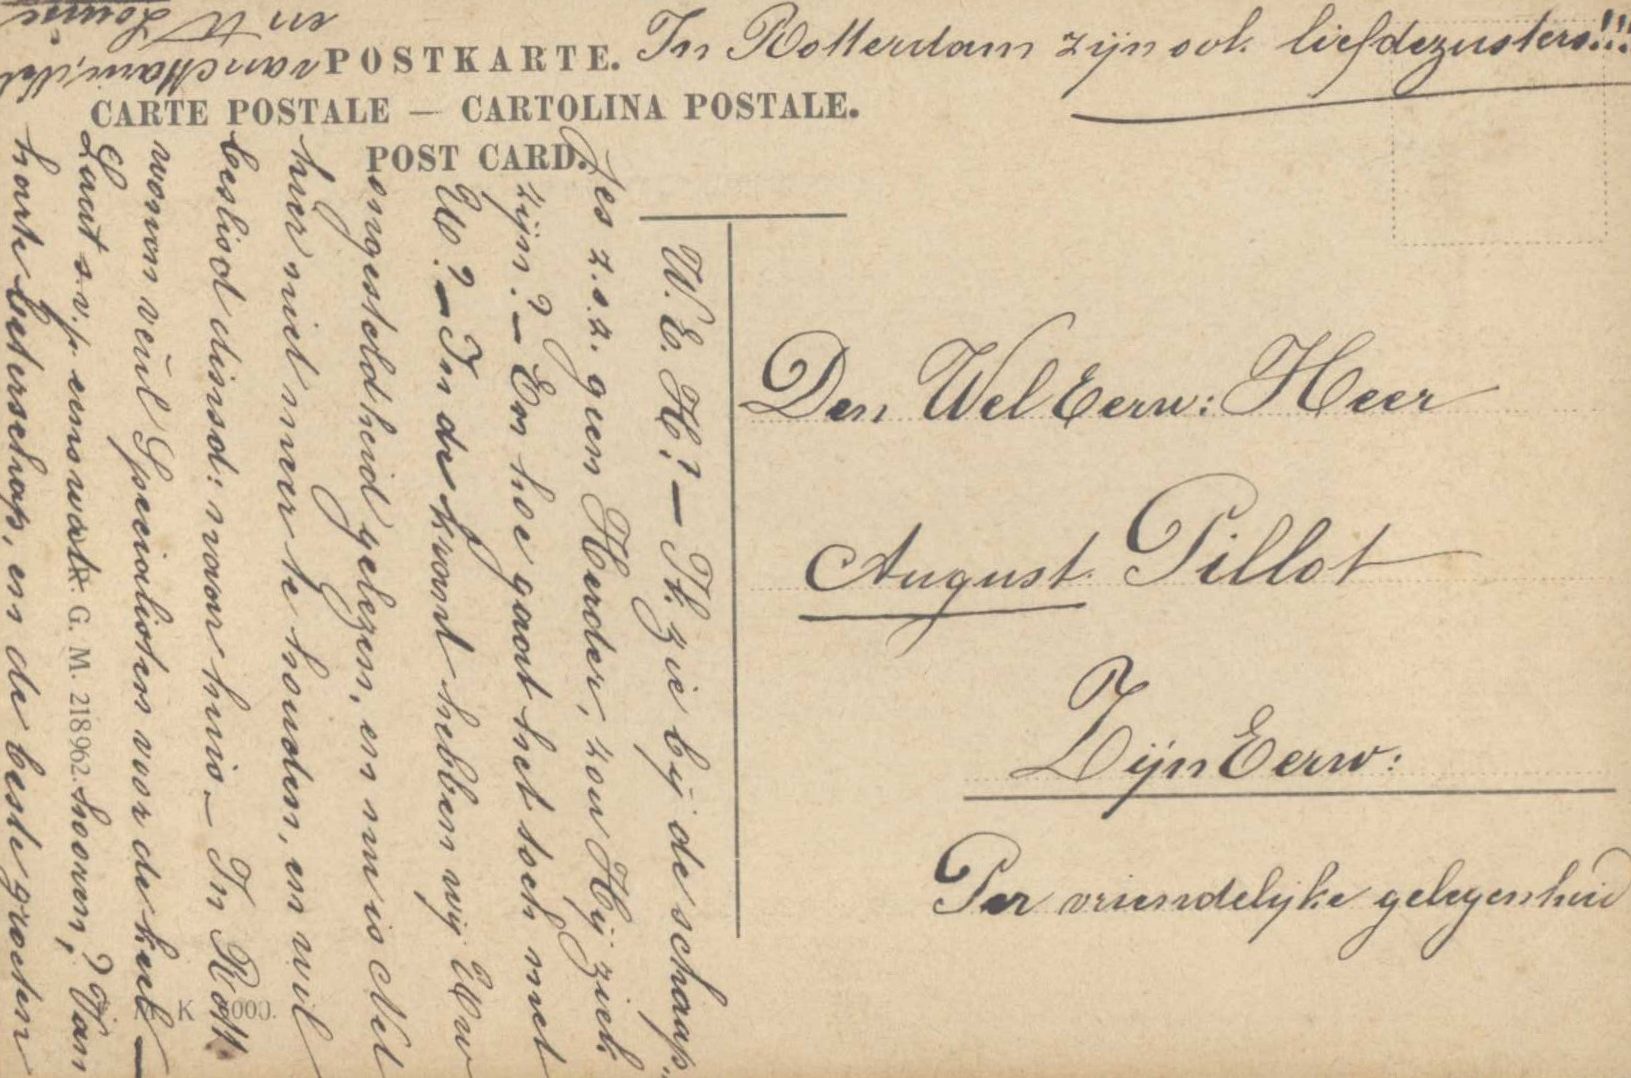 In Rotterdam zijn ook liefdezusters!!!
POSTKARTE.
CARTE POSTALE — CARTOLINA POSTALE.
POST CARD.
Den Wel Eerw: Heer
August Pillot
Zijn Eerw:
Per vriendelijke gelegenheid
W. E. H? — Ik zie bij de schaap-
jes z.o.z. geen Herder, zou Hij ziek
zijn? — En hoe gaat het toch met
Uw? — In de krant hebben wij Uw
ongesteldheid gelezen, en nu is Nel
hier niet meer te houden, en wil
beslist dinsd: naar huis — In Rott
wonen veul Specialisten voor de keel —
Laat s.v.p. eens wat hooren,? Van
harte beterschap, en de beste groeten
van Marie, Nel
en W
Louise
G. M. 218962.
M. K 5000.